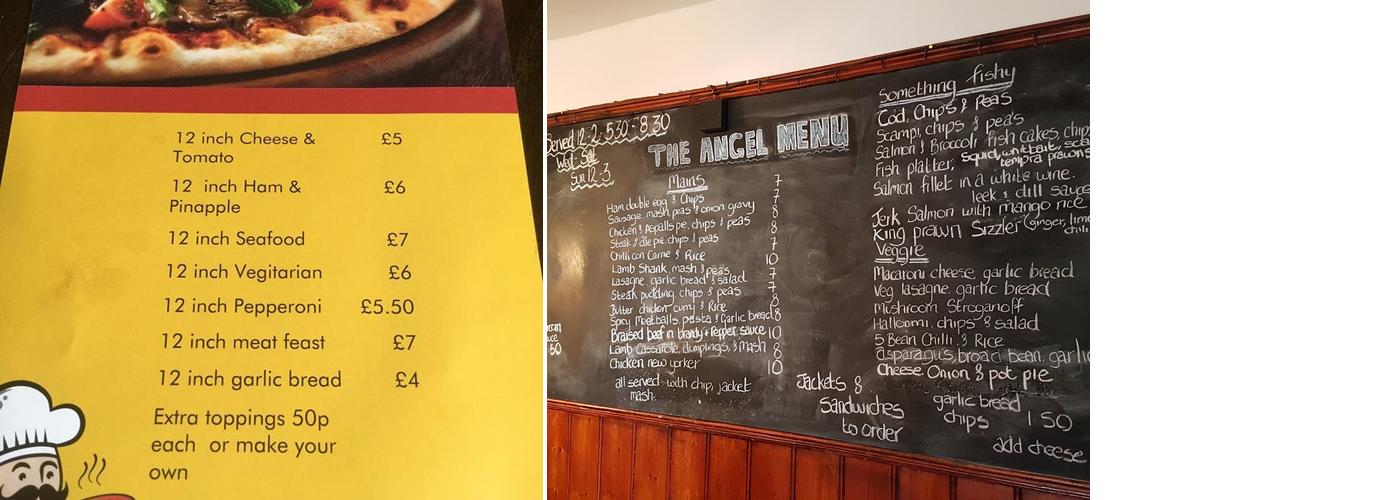 12 inch Cheese &
Tomato
£5
12 inch Ham &
Pinapple
£6
12 inch Seafood £7
12 inch Vegitarian £6
12 inch Pepperoni £5.50
12 inch meat feast £7
12 inch garlic bread £4
Extra toppings 50p
each or make your
own
Served 12-2 - 5.30 - 8.30
Wed - Sat
Sun 12-3
THE ANGEL MENU
Mains
7
Ham double egg & Chips 7
Sausage, mash, peas & onion gravy 8
Chicken & Aspalls pie, chips & peas 8
Steak & ale pie, chips & peas 7
Chilli con Carne & Rice 10
Lamb Shank, mash & peas 7
Lasagne, garlic bread & salad 7
Steak pudding, chips & peas 8
Butter chicken curry & Rice
Spicy Meatballs, pasta & Garlic bread 8
Braised beef in brandy + Pepper sauce 10
Lamb Casserole, dumplings, & mash 8
Chicken new yorker 10
all served with chip, jacket
mash.
50
Something fishy
Cod, Chips & Peas
Scampi, chips & peas
Salmon & Broccoli fish cakes, chips
Fish platter, squid, whitbait,
tempra prawns
Salmon fillet in a white wine.
leek & dill sauce
Jerk Salmon with mango rice
King prawn Sizzler (ginger, lime
chilli
Veggie
Macaroni cheese, garlic bread
Veg lasagne, garlic bread
Mushroom Stroganoff
Halloumi, chips & salad
5 Bean Chilli & Rice
asparagus, broad bean, garlic
Cheese Onion & pot pie
Jackets &
Sandwiches
to order
garlic bread
chips 1.50
add cheese